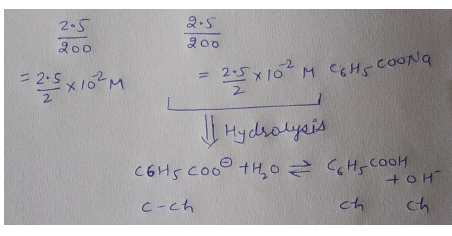 2.5/200 2.5/200
= 2.5/2 × 10⁻² M = 2.5/2 × 10⁻² M C6H5COONa
⇓ Hydrolysis
C6H5COO⊖ + H2O ⇌ C6H5COOH
+ OH⁻
C-Ch Ch Ch